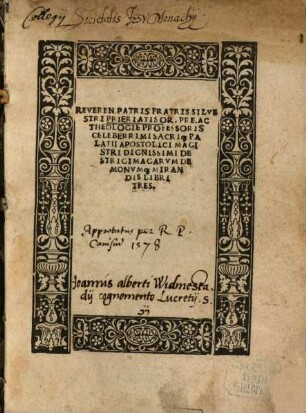 Collegij Societatis Jesu Monachij
REVEREN. PATRIS FRATRIS SILVE
STRI PRIERIATIS OR. PRE. AC
THEOLOGIE PROFESSORIS
CELEBERRIMI SACRIQ PA
LATII APOSTOLICI MAGI
STRI DIGNISSIMI DE
STRIGIMAGARVM DE
MONVMQ MIRAN
DIS LIBRI
TRES.
Approbatus per R P.
Canisiū 1578
Joannis alberti Widmesta
dij cognomento Lucretij. S.